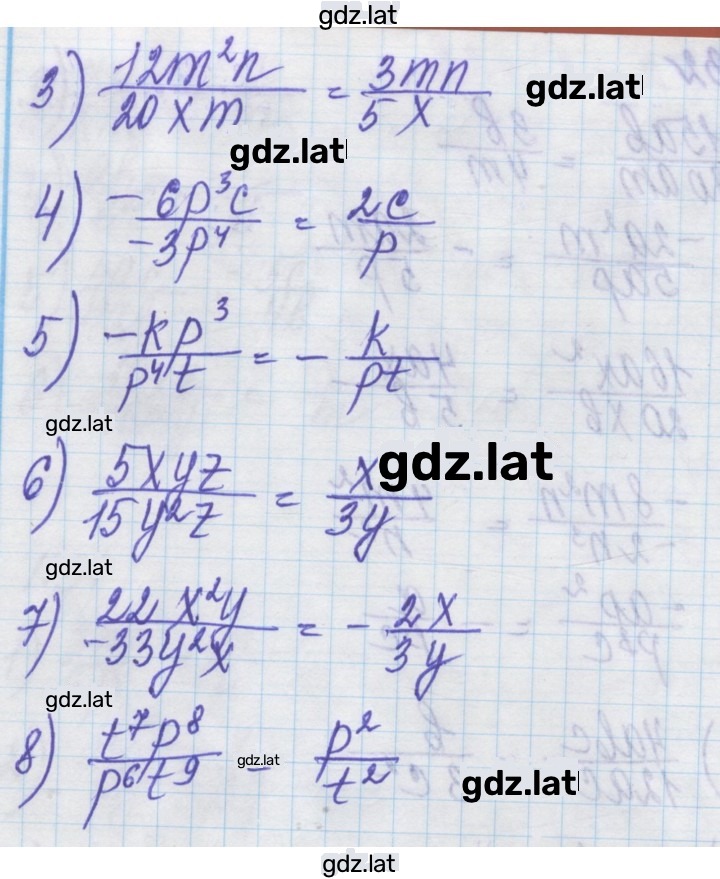 gdz.lat
3) 12m²n / 20xm = 3mn / 5x gdz.lat
gdz.lat
4) -6p³c / -3p⁴ = 2c / p
5) -kp³ / p⁴t = - k / pt
gdz.lat
6) 5xyz / 15y²z = x / 3y gdz.lat
gdz.lat
7) 22x²y / -33y²x = - 2x / 3y
gdz.lat
8) t⁷p⁸ / p⁶t⁹ = p² / t² gdz.lat
gdz.lat
gdz.lat